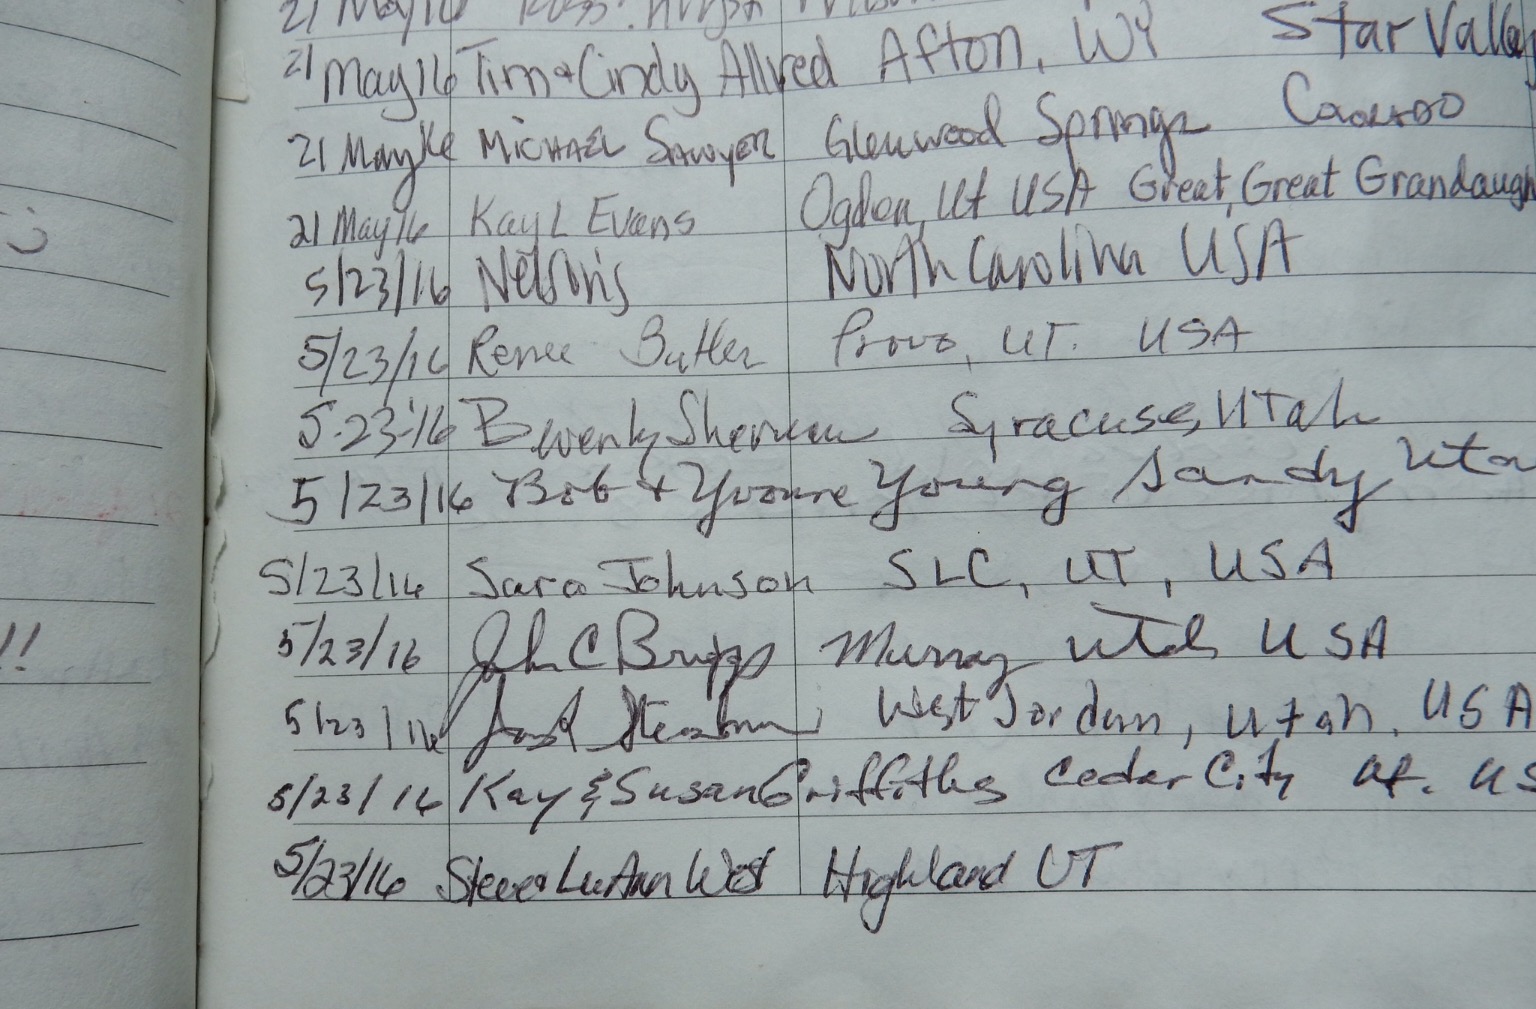 21 May 16
21 May 16 Tim & Cindy Allred Afton, WY Star Valley
21 May 16 Michael Sawyer Glenwood Springs Colorado
21 May 16 Kay L Evans Ogden, Ut USA Great, Great Grandaugh
5/23/16 North Carolina USA
5/23/16 Renee Butler Provo, UT. USA
5-23-16 Beverly Syracuse, Utah
5/23/16 Bob & Yvonne Young Sandy Utah
5/23/16 Sara Johnson SLC, UT, USA
!! 5/23/16 John C Briggs Murray Utah USA
5/23/16 West Jordan, Utah, USA
5/23/16 Kay & Susan Griffiths Cedar City Ut. US
5/23/16 Steve & LuAnn West Highland UT